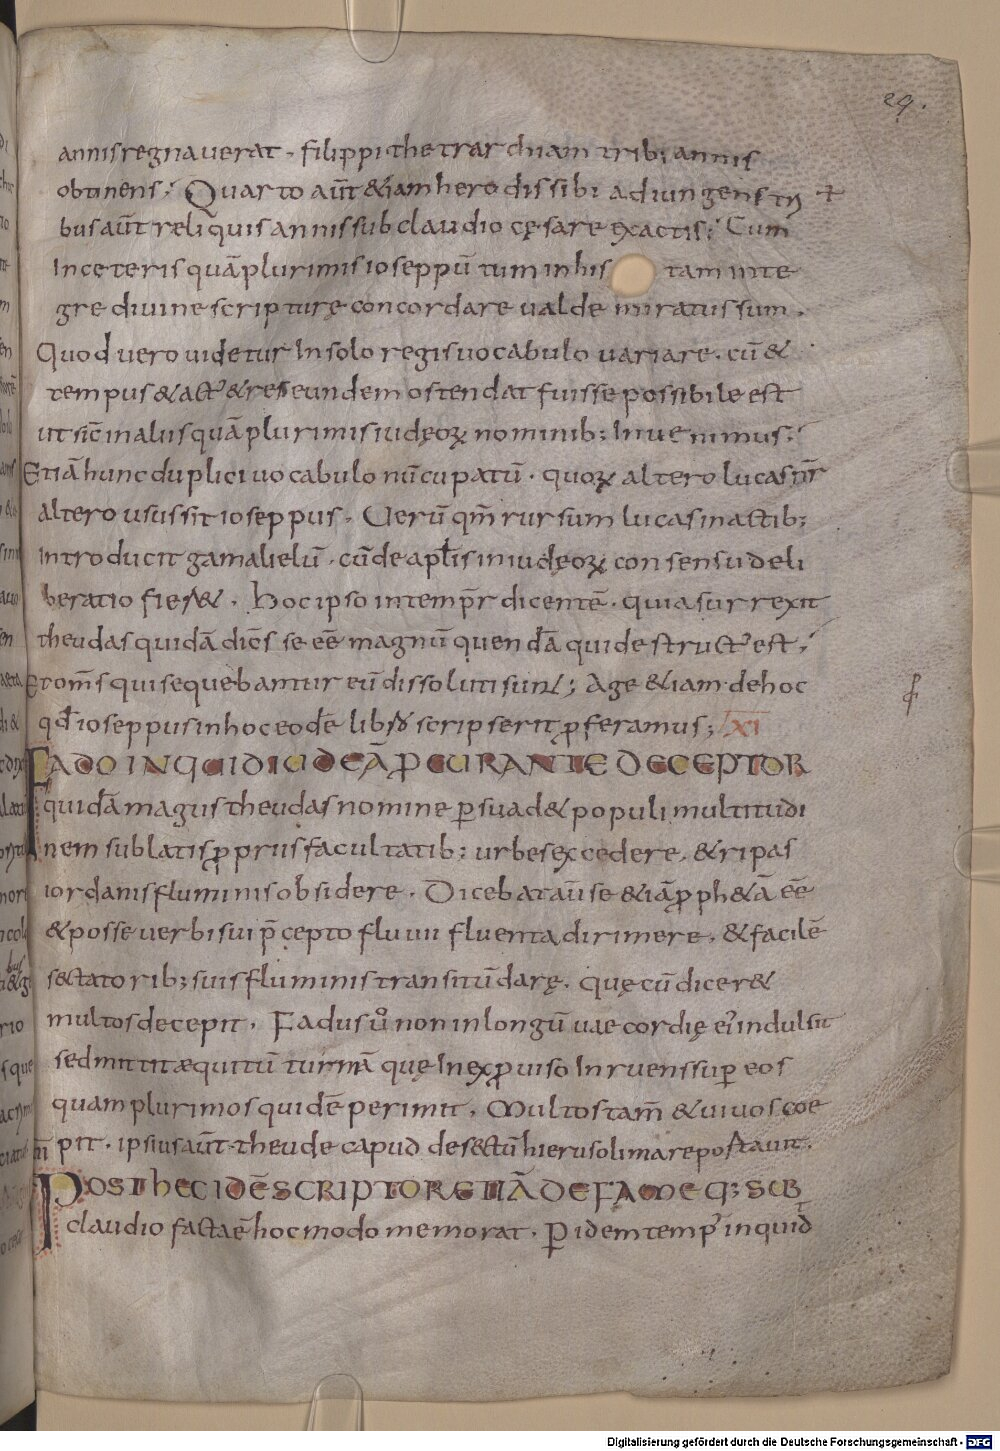 29.
annis regnaverat. filippi thetrarchiam tribus annis
obtinens; Quarto aūt & iam herodis sibi adiungens tri
bus aūt reliquis annis sub claudio cęsare exactis; Cum
In ceteris quā plurimis ioseppū tum in his tam inte
gre divine scripturę concordare valde miratus sum.
Quod vero videtur In solo regis vocabulo variare. cū &
tempus & act' & res eundem ostendat fuisse possibile est
ut sic in aliis quā plurimis iudęoꝝ nominib; Invenimus;
Etiā hunc duplici vocabulo nūcupatū. quoꝝ altero lucas nr̄
altero usus sit ioseppus. Verū qm̄ rursum lucas in actib;
Introducit gamalielū. cū de apl̄is in iudęoꝝ consensu deli
beratio fier&. Hoc ipso in tempr̄ dicentē. quia surrexit
theudas quidā dicēs se eē magnū quendā qui destruct' est;
Et om̄s qui sequebantur eū dissoluti sunt; Age & iam de hoc
qđ ioseppus in hoc eodē libro scripserit ꝓferamus; XI
FADO INQUID IUDEĀ PCURANTE DECEPTOR
quidā magus theudas nomine ꝑsuad& populi multitudi
nem sublatis ꝓpriis facultatib; urbes excedere. & ripas
iordanis fluminis obsidere. Dicebat aūt se & iā ꝓph&ā eē
& posse verbi sui p̄cepto fluvii fluenta dirimere. & facilē
s&tatorib; suis fluminis transitū darę. Quę cū dicer&
multos decepit. Fadus ů non in longū vaecordię ei' indulsit
sed mittit æquitū turmā quę In exꝓviso Inruens suꝑ eos
quam plurimos quidē perimit. Multos tam̄ & vivos coe
pit. ipsius aūt theude capud des&tū hierusolima repostavit.
POST hEC IDĒ SCRIPTOR ETIĀ DE FAME Q; SUB
claudio facta ē hoc modo memorat. Ꝑ idem temp' inquid
Digitalisierung gefördert durch die Deutsche Forschungsgemeinschaft - DFG